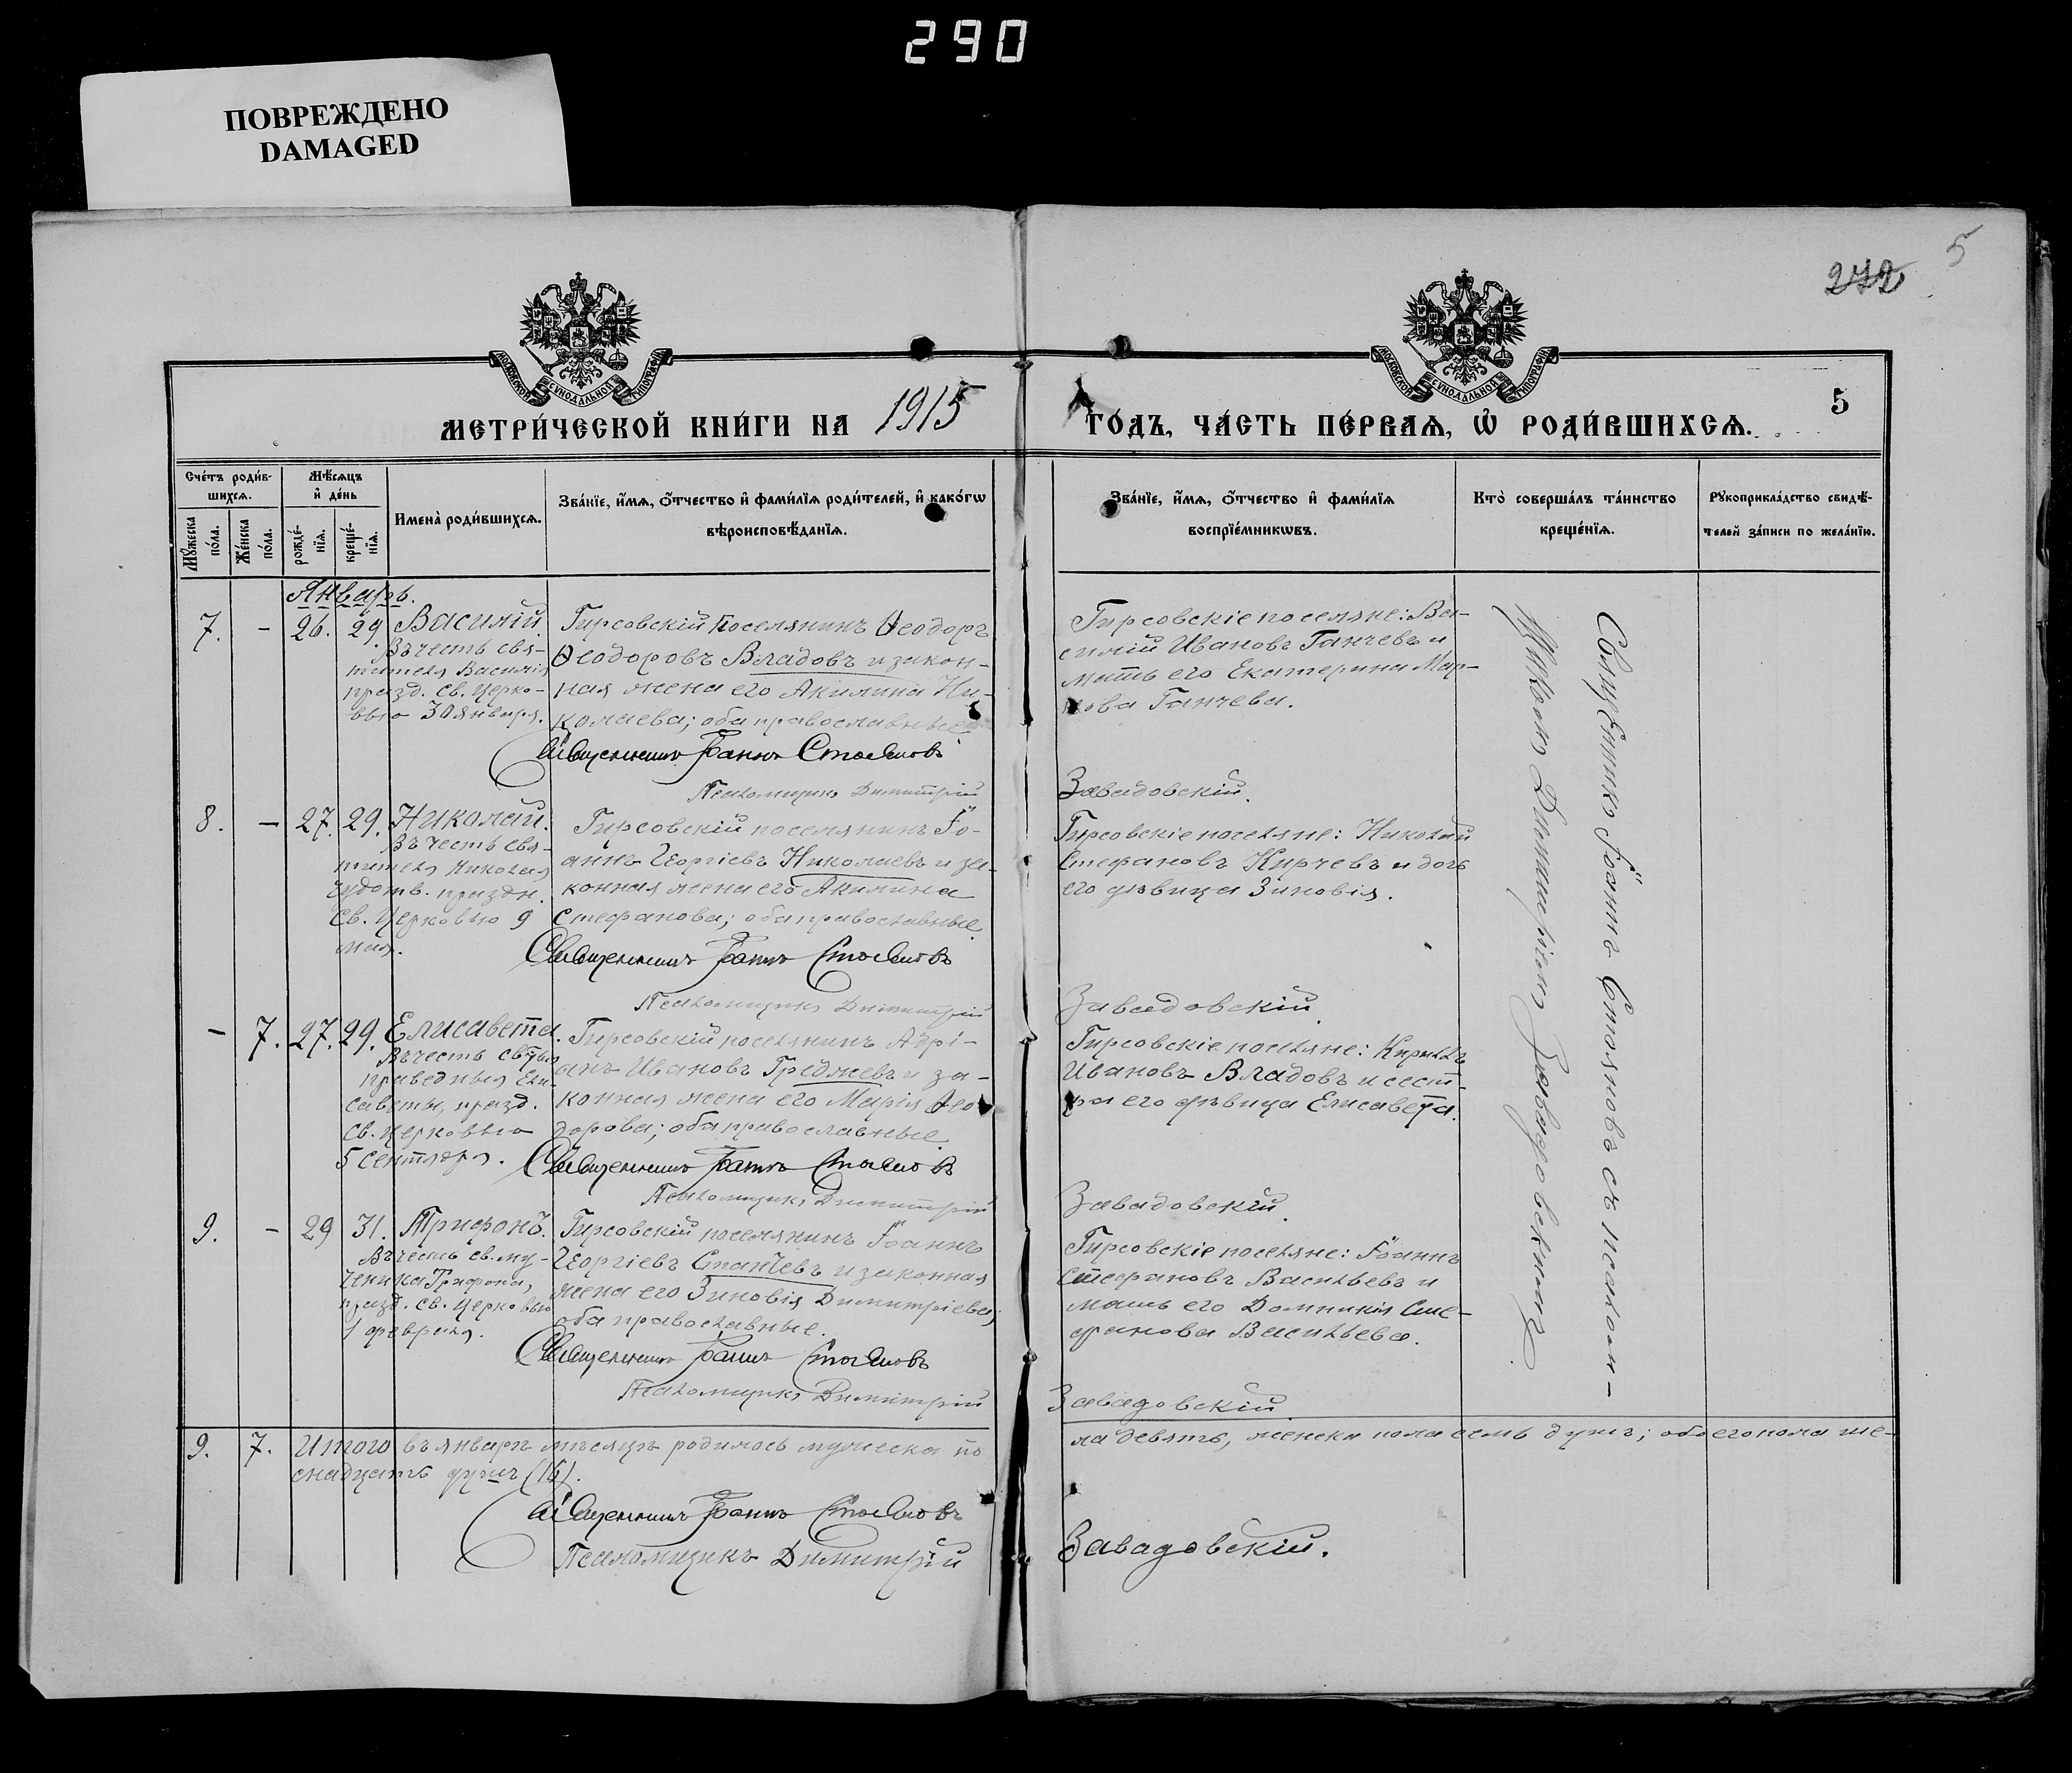 290
ПОВРЕЖДЕНО
DAMAGED
5
272
МОСКОВСКОЙ СУНОДАЛЬНОЙ ТИПОГРАФІИ
МОСКОВСКОЙ СУНОДАЛЬНОЙ ТИПОГРАФІИ
МЕТРИ́ЧЕСКОЙ КНИ́ГИ НА 1915
ГО́ДЪ, ЧА́СТЬ ПЕ́РВАѦ, Ѡ҆ РОДИ́ВШИХСѦ.
5
Сче́тъ роди́в-
шихсѧ.
Мѣ́сѧцъ
и҆ де́нь
Мꙋ́жеска
по́ла.
Же́нска
по́ла.
рожде́-
нїѧ.
креще́-
нїѧ.
Имена̀ роди́вшихсѧ.
Зва́нїе, и҆́мѧ, ѻ҆́тчество и҆ фами́лїѧ роди́телей, и҆ како́гѡ
вѣроисповѣ́данїѧ.
Зва́нїе, и҆́мѧ, ѻ҆́тчество и҆ фами́лїѧ
воспрїе́мникѡвъ.
Кто̀ соверша́лъ та́инство
креще́нїѧ.
Рꙋкоприкла́дство свидѣ́-
телей за́писи по жела́нїю.
Январь.
7. - 26. 29 Василій.
Въ честь свя-
тителя Василія
празд. св. Церко-
вью 30 января.
Гирсовскій поселянинъ Ѳеодоръ
Ѳеодоровъ Владовъ и закон-
ная жена его Акилина Ни-
колаева; оба православные.
Священникъ Іоаннъ Стояновъ
Псаломщикъ Димитрій
Гирсовскіе поселяне: Ва-
силій Ивановъ Ганчевъ и
мать его Екатерина Мар-
кова Ганчева.
Завадовскій.
8. - 27. 29. Николай.
Въ честь свя-
тителя Николая
чудотв. праздн.
св. Церковью 9
мая.
Гирсовскій поселянинъ Іо-
аннъ Георгіевъ Николаевъ и за-
конная жена его Акилина
Стефанова; оба православные.
Священникъ Іоаннъ Стояновъ
Псаломщикъ Димитрій
Гирсовскіе поселяне: Николай
Стефановъ Кирчевъ и дочь
его дѣвица Зиновія.
Завадовскій.
- 7. 27. 29. Елисавета.
Въ честь святыя
праведныя Ели-
саветы, празд.
св. Церковью
5 сентября.
Гирсовскій поселянинъ Адрі-
анъ Ивановъ Греджевъ и за-
конная жена его Марія Ѳео-
дорова; оба православные.
Священникъ Іоаннъ Стояновъ
Псаломщикъ Димитрій
Гирсовскіе поселяне: Кириллъ
Ивановъ Владовъ и сест-
ра его дѣвица Елисавета.
Завадовскій.
9. - 29 31. Трифонъ.
Въ честь св. му-
ченика Трифона,
празд. св. Церковью
1 февраля.
Гирсовскій поселянинъ Іоаннъ
Георгіевъ Станчевъ и законная
жена его Зиновія Димитріева;
оба православные.
Священникъ Іоаннъ Стояновъ
Псаломщикъ Димитрій
Гирсовскіе поселяне: Іоаннъ
Стефановъ Васильевъ и
мать его Домникія Сте-
фанова Васильева.
Завадовскій.
Священникъ Іоаннъ Стояновъ съ псалом-
щикомъ Димитріемъ Завадовскимъ.
9. 7. Итого въ январѣ мѣсяцѣ родилось мужеска по
ла девять, женска пола семь душъ; обоего пола ше-
снадцать душъ (16).
Священникъ Іоаннъ Стояновъ
Псаломщикъ Димитрій
Завадовскій.